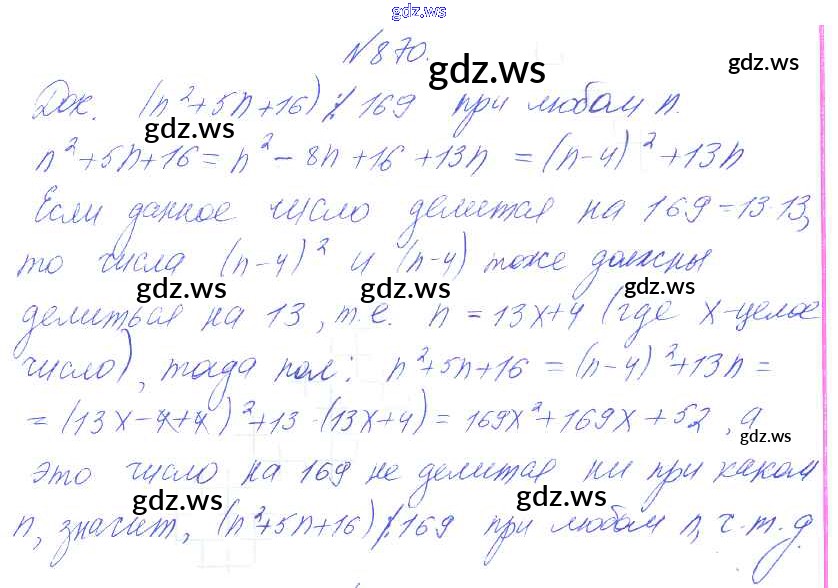 gdz.ws
№ 870.
gdz.ws
gdz.ws
Док. (n²+5n+16) ⋮̸ 169 при любом n.
gdz.ws
n²+5n+16 = n²-8n+16+13n = (n-4)²+13n
Если данное число делится на 169=13·13,
то числа (n-4)² и (n-4) тоже должны
gdz.ws gdz.ws gdz.ws
делиться на 13, т.е. n = 13x+4 (где x-целое
число), тогда пол: n²+5n+16 = (n-4)²+13n =
= (13x-4+4)²+13·(13x+4) = 169x²+169x+52, а
gdz.ws
это число на 169 не делится ни при каком
gdz.ws gdz.ws
n, значит, (n²+5n+16) ⋮̸ 169 при любом n, ч.т.д.